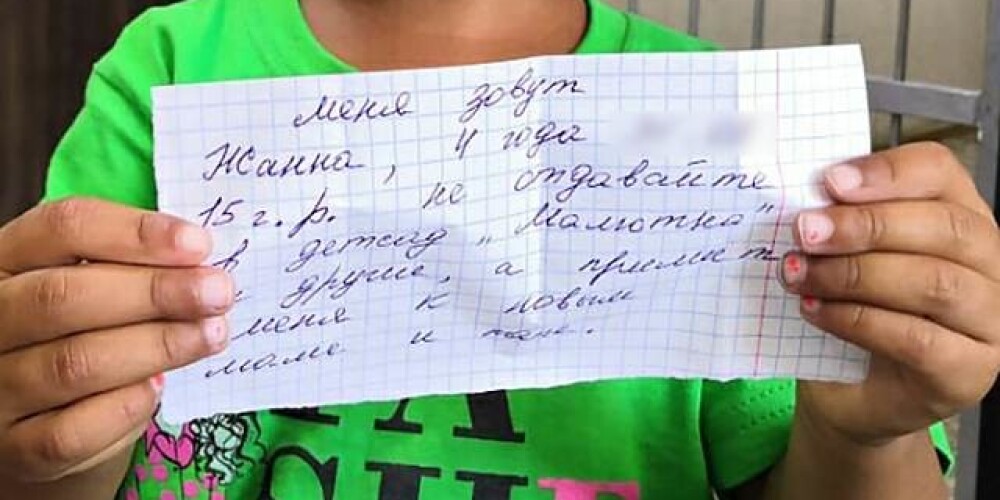 меня зовут
Жанна, 4 года
15 г. р. не отдавайте
в детсад „Малютка"
и другие, а
меня к новым
маме и папе.